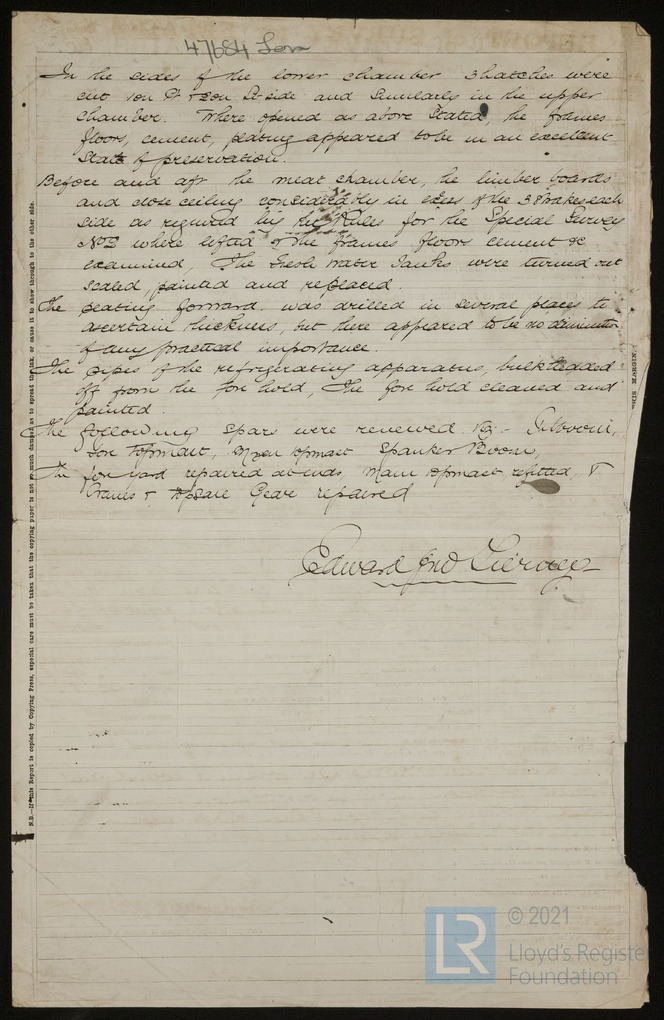 47684 Lon
In the sides of the lower chamber 3 hatches were
cut 1 on Pt & 2 on St side and Similarly in the upper
chamber. Where opened as above stated, the frames
floors, cement, plating appeared to be in an excellent
State of preservation.
Before and aft the meat chamber, the limber boards
and close ceiling considerably in excess of the 3 Strakes each
side as required by the Rules for the Special Survey
No 2 where lifted & the frames floors cement &c
examined, The Fresh water Tanks were turned out
scaled, painted and replaced.
The plating forward was drilled in several places to
ascertain thickness, but there appeared to be no diminution
of any practical importance.
The pipes of the refrigerating apparatus, bulkheaded
off from the fore hold, The fore hold cleaned and
painted.
The following Spars were renewed Viz:- Jibboom,
Fore Topmast, Mizen topmast Spanker Boom,
The fore yard repaired at ends, Main topmast refitted, &
Cranes & topsail Gear repaired
Edward Jno
N.B.—If this Report is copied by Copying Press, especial care must be taken that the copying paper is not so much damped as to spread the ink, or cause it to show through to the other side.
THIS MARGIN.
LR
© 2021
Lloyd's Register
Foundation